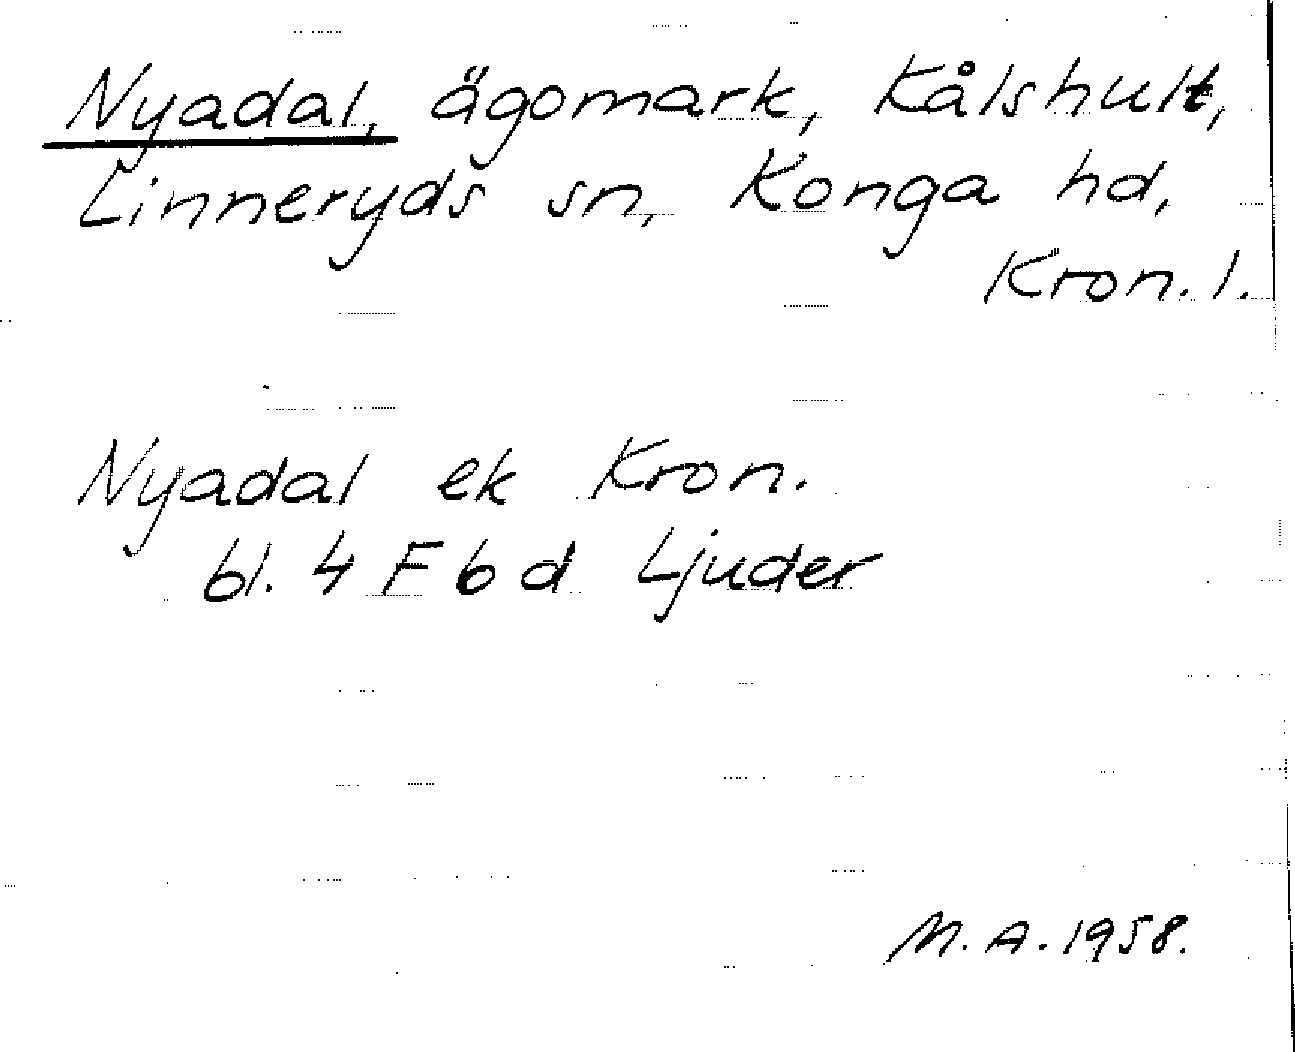 Nyadal, ägomark, Kålshult,
Linneryds sn, Konga hd,
Kron. l.
Nyadal ek Kron.
bl. 4 F b d Ljuder
M. A. 1958.